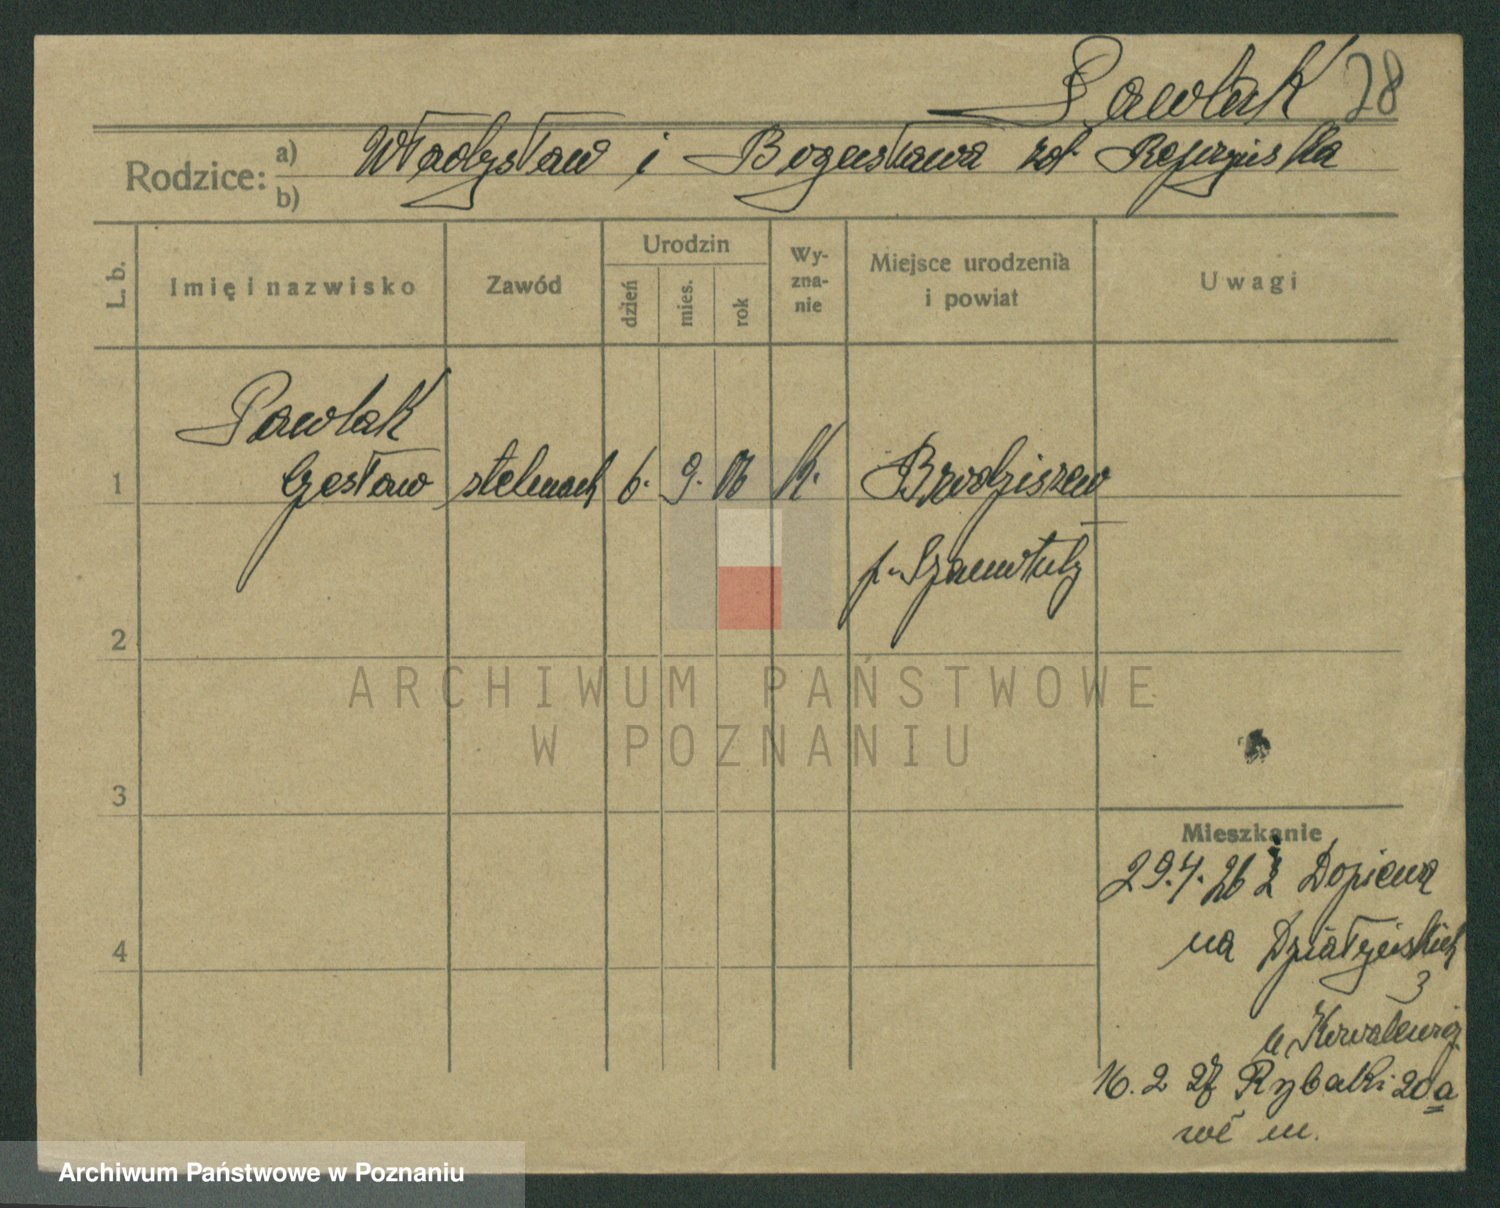 Pawlak 28
Rodzice: a) b) Władysław i Bogusława
L. b.
Imię i nazwisko
Zawód
Urodzin
dzień
mies.
rok
Wy-
zna-
nie
Miejsce urodzenia
i powiat
Uwagi
Pawlak
1 Czesław stelmach 6. 9. 06 k. Brodziszewo
p. Szamotuły
2
ARCHIWUM PAŃSTWOWE
W POZNANIU
3
Mieszkanie
29.4.26 z Dopiewa
na Działyńskich
4
3
u
16. 2 27 Rybaki 20a
Archiwum Państwowe w Poznaniu